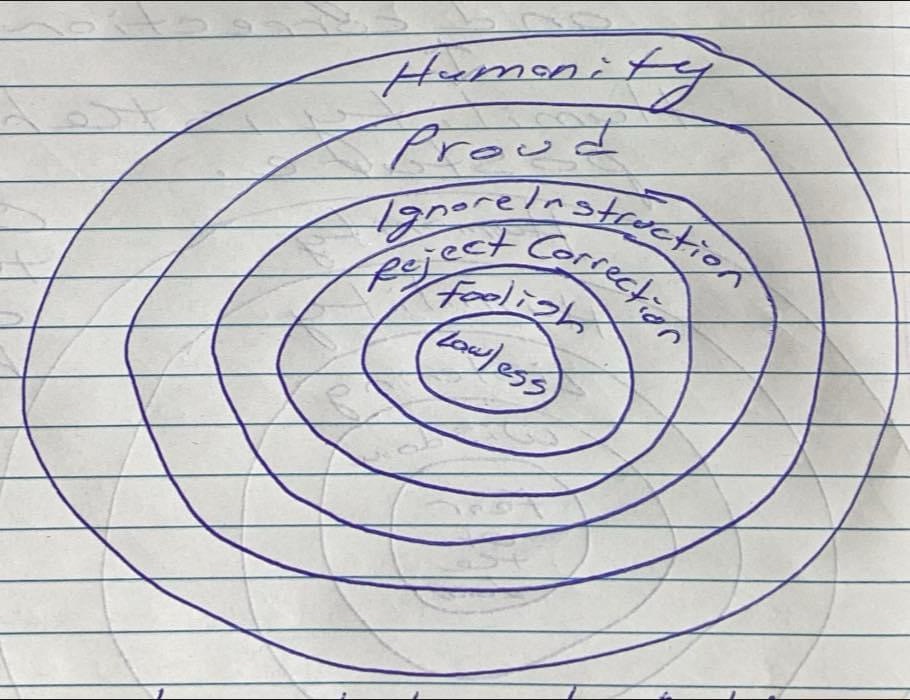 Humanity
Proud
Ignore Instruction
Reject Correction
Foolish
Lawless